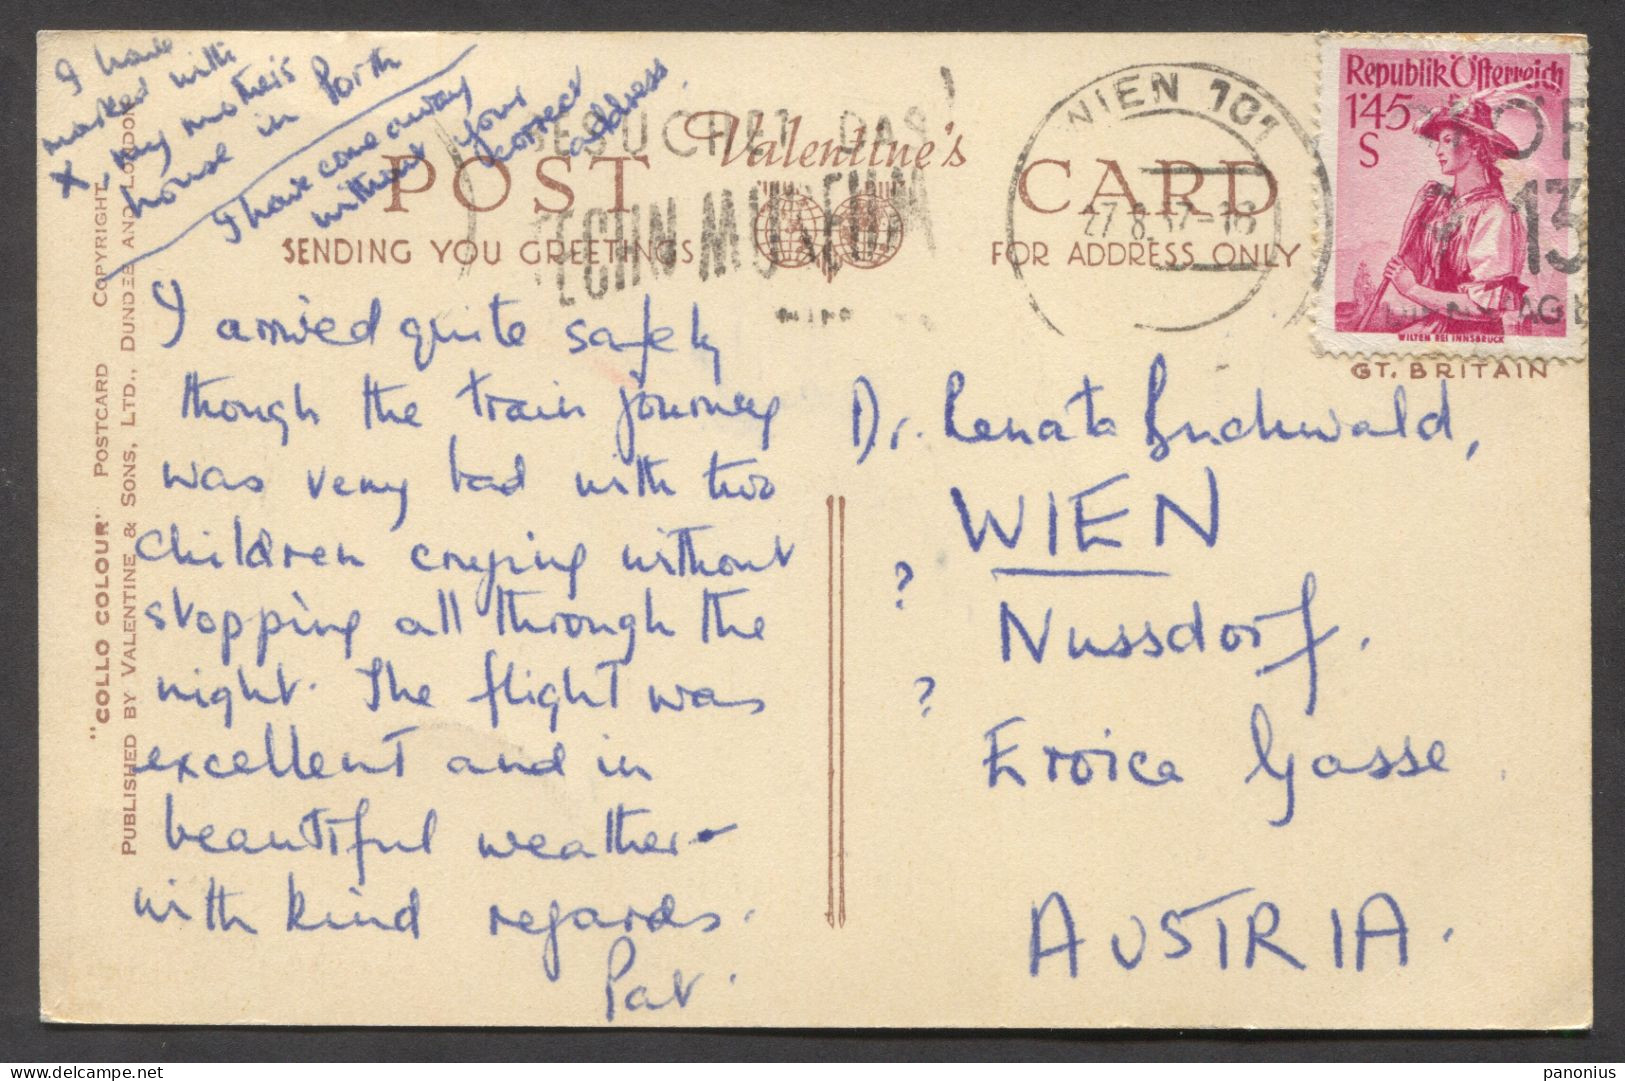 I have
marked with
X my mother's
house in Porth
I have come away
without your
correct
address.
POST
Valentine's
CARD
SENDING YOU GREETINGS
FOR ADDRESS ONLY
BESUCHET DAS
TECHN MUSEUM
WIEN 101
27.8.57-18
Republik Österreich
1'45
S
WILTEN BEI INNSBRUCK
13
GT. BRITAIN
"COLLO COLOUR" POSTCARD COPYRIGHT
PUBLISHED BY VALENTINE & SONS, LTD., DUNDEE AND LONDON
I arrived quite safely
though the train journey
was very bad with two
children crying without
stopping all through the
night. The flight was
excellent and in
beautiful weather -
with kind regards.
Pat.
Dr. Renata Buchwald,
WIEN
? Nussdorf.
? Eroica Gasse.
AUSTRIA.
www.delcampe.net
panonius